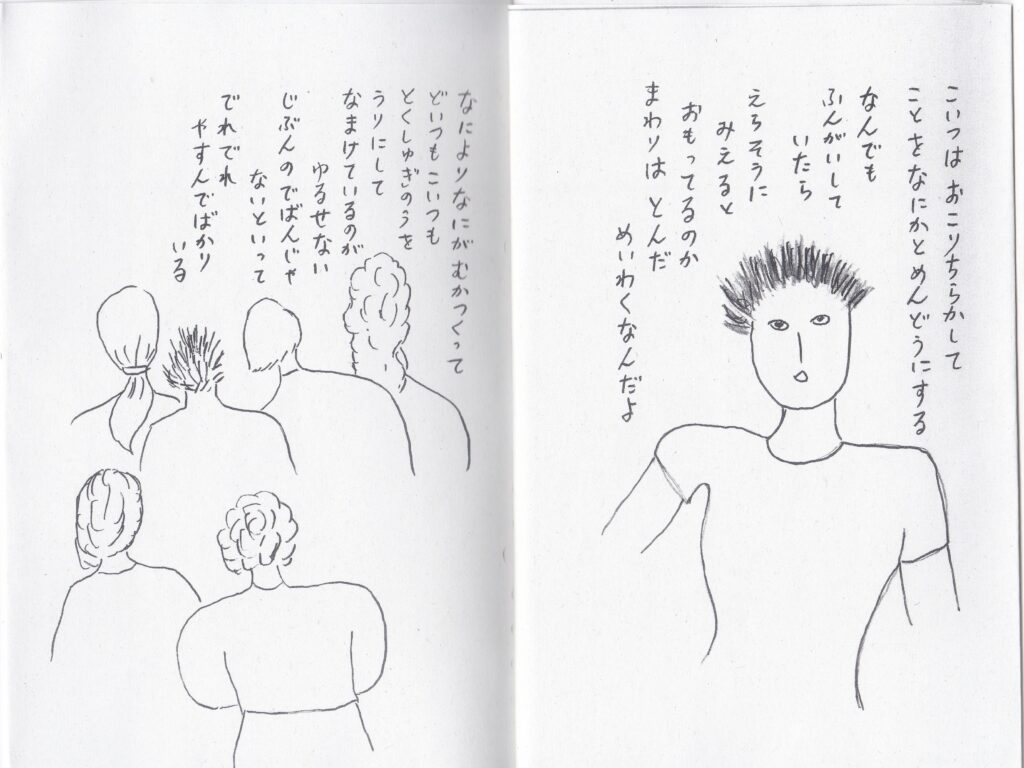 こいつは おこりちらかして
ことをなにかとめんどうにする
なんでも
ふんがいして
いたら
えらそうに
みえると
おもってるのか
まわりは とんだ
めいわくなんだよ
なによりなにが むかつくって
どいつも こいつも
とくしゅぎのうを
うりにして
なまけているのが
ゆるせない
じぶんのでばんじゃ
ないといって
でれでれ
やすんでばかり
いる